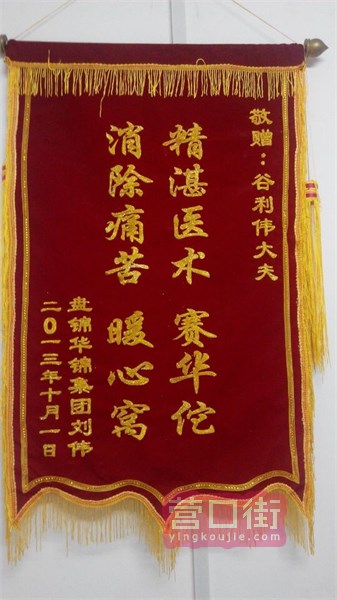 敬赠：谷利伟大夫
精湛医术 赛华佗
消除痛苦 暖心窝
盘锦华锦集团刘伟
二0一三年十月一日
营口街
yingkoujie.com